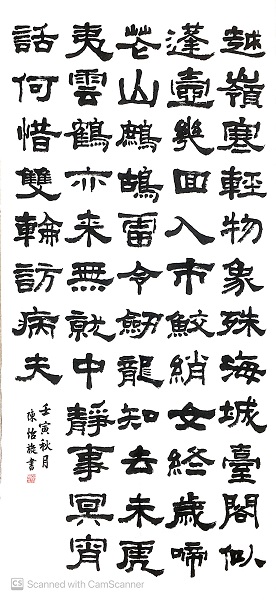 越嶺寒輕物象殊海城臺閣似
蓬壺幾回入市鮫綃女終歲啼
花山鷓鴣雷令劒龍知去未虎
夷雲鶴亦来無就中靜事冥宵
話何惜雙輪訪病夫
壬寅秋月
陳怡璇書
CS Scanned with CamScanner